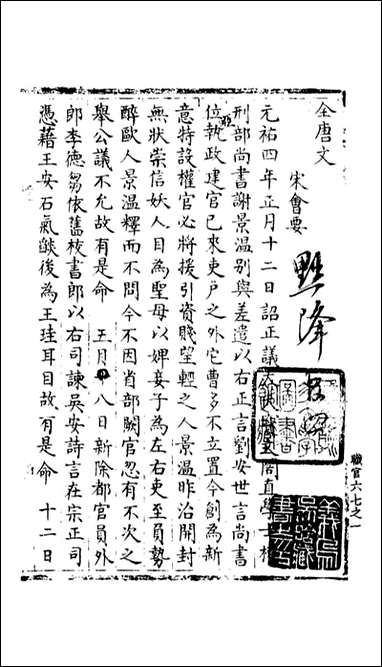 全唐文
宋會要
黜降
元祐四年正月十二日詔正議大夫直學士權
刑部尚書謝景温别與差遣以右正言劉安世言尚書
位執政建官已來吏戶之外它曹多不立置今創為新
意特設權官必將援引資賤望輕之人景温昨治開封
無狀崇信妖人目為聖母以婢妾子為左右吏至員勢
醉歐人景温釋而不問今不因肖部闕官忽有不次之
舉公議不允故有是命 五月 八日新除都官員外
郎李德芻依舊校書郎以右司諫吳安詩言在宗正司
憑藉王安石氣燄後為王珪耳目故有是命 十二日
職官六七之一